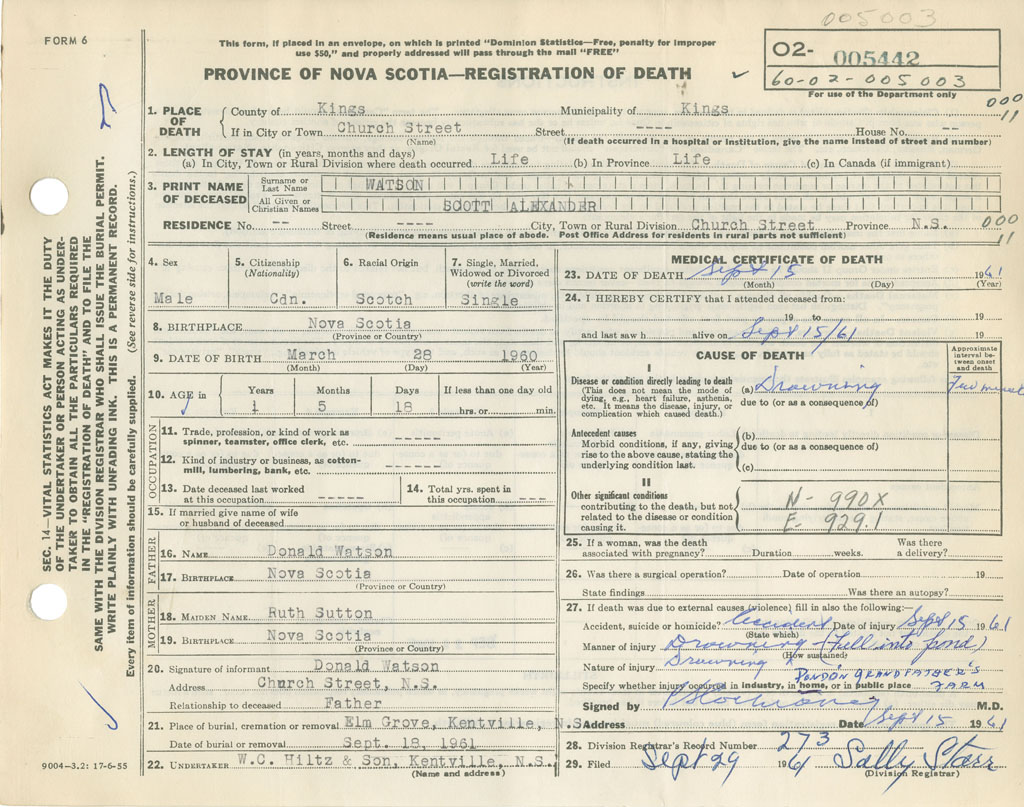 005003
FORM 6
This form, if placed in an envelope, on which is printed "Dominion Statistics—Free, penalty for improper
use $50," and properly addressed will pass through the mail "FREE"
02- 005442
60-02-005003
For use of the Department only
PROVINCE OF NOVA SCOTIA—REGISTRATION OF DEATH
SEC. 14—VITAL STATISTICS ACT MAKES IT THE DUTY
OF THE UNDERTAKER OR PERSON ACTING AS UNDER-
TAKER TO OBTAIN ALL THE PARTICULARS REQUIRED
IN THE "REGISTRATION OF DEATH" AND TO FILE THE
SAME WITH THE DIVISION REGISTRAR WHO SHALL ISSUE THE BURIAL PERMIT.
WRITE PLAINLY WITH UNFADING INK. THIS IS A PERMANENT RECORD.
Every item of information should be carefully supplied. (See reverse side for instructions.)
1. PLACE OF DEATH County of Kings Municipality of Kings 000 11
If in City or Town Church Street Street ---- House No. --
(Name) (If death occurred in a hospital or institution, give the name instead of street and number)
2. LENGTH OF STAY (in years, months and days)
(a) In City, Town or Rural Division where death occurred Life (b) In Province Life (c) In Canada (if immigrant)
3. PRINT NAME OF DECEASED Surname or Last Name WATSON
All Given or Christian Names SCOTT ALEXANDER
RESIDENCE No. -- Street ---- City, Town or Rural Division Church Street Province N.S. 000 11
(Residence means usual place of abode. Post Office Address for residents in rural parts not sufficient)
4. Sex Male
5. Citizenship (Nationality) Cdn.
6. Racial Origin Scotch
7. Single, Married, Widowed or Divorced (write the word) Single
8. BIRTHPLACE Nova Scotia
(Province or Country)
9. DATE OF BIRTH March 28 1960
(Month) (Day) (Year)
10. AGE in Years 1 Months 5 Days 18 If less than one day old hrs. or min.
OCCUPATION
11. Trade, profession, or kind of work as
spinner, teamster, office clerk, etc. -----
12. Kind of industry or business, as cotton-
mill, lumbering, bank, etc. ------
13. Date deceased last worked
at this occupation -----
14. Total yrs. spent in
this occupation ----
15. If married give name of wife
or husband of deceased
FATHER
16. NAME Donald Watson
17. BIRTHPLACE Nova Scotia
(Province or Country)
MOTHER
18. MAIDEN NAME Ruth Sutton
19. BIRTHPLACE Nova Scotia
(Province or Country)
20. Signature of informant Donald Watson
Address Church Street, N.S.
Relationship to deceased Father
21. Place of burial, cremation or removal Elm Grove, Kentville, N.S.
Date of burial or removal Sept. 18, 1961
22. UNDERTAKER W.C. Hiltz & Son, Kentville, N.S.
(Name and address)
9004-3.2: 17-6-55
MEDICAL CERTIFICATE OF DEATH
23. DATE OF DEATH Sept 15 1961
(Month) (Day) (Year)
24. I HEREBY CERTIFY that I attended deceased from:
19 to 19
and last saw h alive on Sept 15/61 19
CAUSE OF DEATH
Approximate interval between onset and death
I
Disease or condition directly leading to death
(This does not mean the mode of
dying, e.g., heart failure, asthenia,
etc. It means the disease, injury, or
complication which caused death.)
(a) Drowning
due to (or as a consequence of)
Antecedent causes
Morbid conditions, if any, giving
rise to the above cause, stating the
underlying condition last.
(b)
due to (or as a consequence of)
(c)
II
Other significant conditions
contributing to the death, but not
related to the disease or condition
causing it.
N- 990X
E- 929.1
25. If a woman, was the death Was there
associated with pregnancy? Duration weeks. a delivery?
26. Was there a surgical operation? Date of operation 19
State findings Was there an autopsy?
27. If death was due to external causes (violence) fill in also the following:—
Accident, suicide or homicide? Accident Date of injury Sept 15 1961
(State which)
Manner of injury Drowning (Fell into pond)
(How sustained)
Nature of injury Drowning
POND ON GRANDFATHER'S
Specify whether injury occurred in industry, in home, or in public place FARM
Signed by M.D.
Address Date Sept 15 1961
28. Division Registrar's Record Number 273
29. Filed Sept 29 1961 Sally Starr
(Division Registrar)